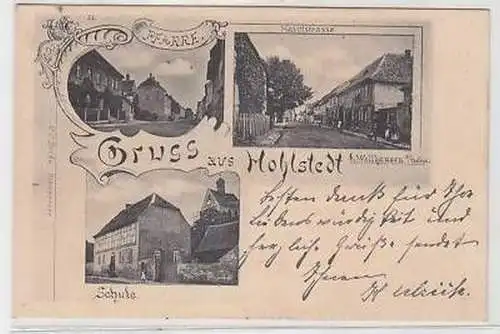 PFARRE.
Hauptstrasse
Gruss aus Hohlstedt
b. Wallhausen
Schule
Besten Dank für Ihre
Liebenswürdigkeit und
herzliche Grüße sendet
Ihnen